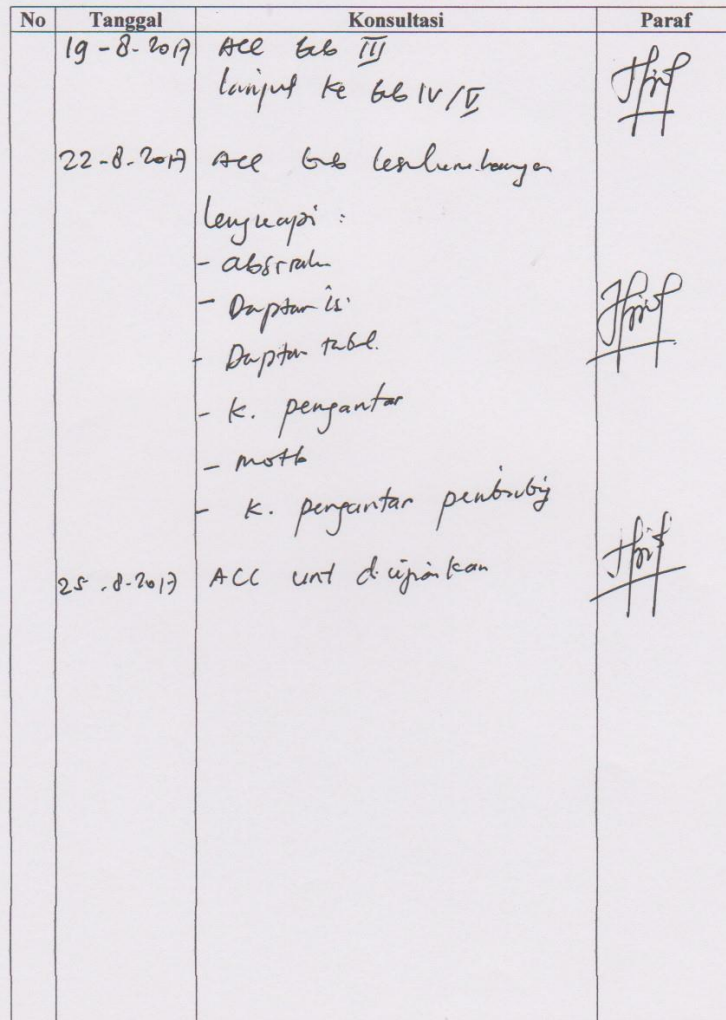 No Tanggal Konsultasi Paraf
19-8-2017 ACC bab III
lanjut ke bab IV/V
22-8-2017 ACC bab
lengkapi :
- abstrak
- Daptar isi
- Daptar tabel.
- K. pengantar
- motto
- K. pengantar
25-8-2017 ACC unt diujiankan